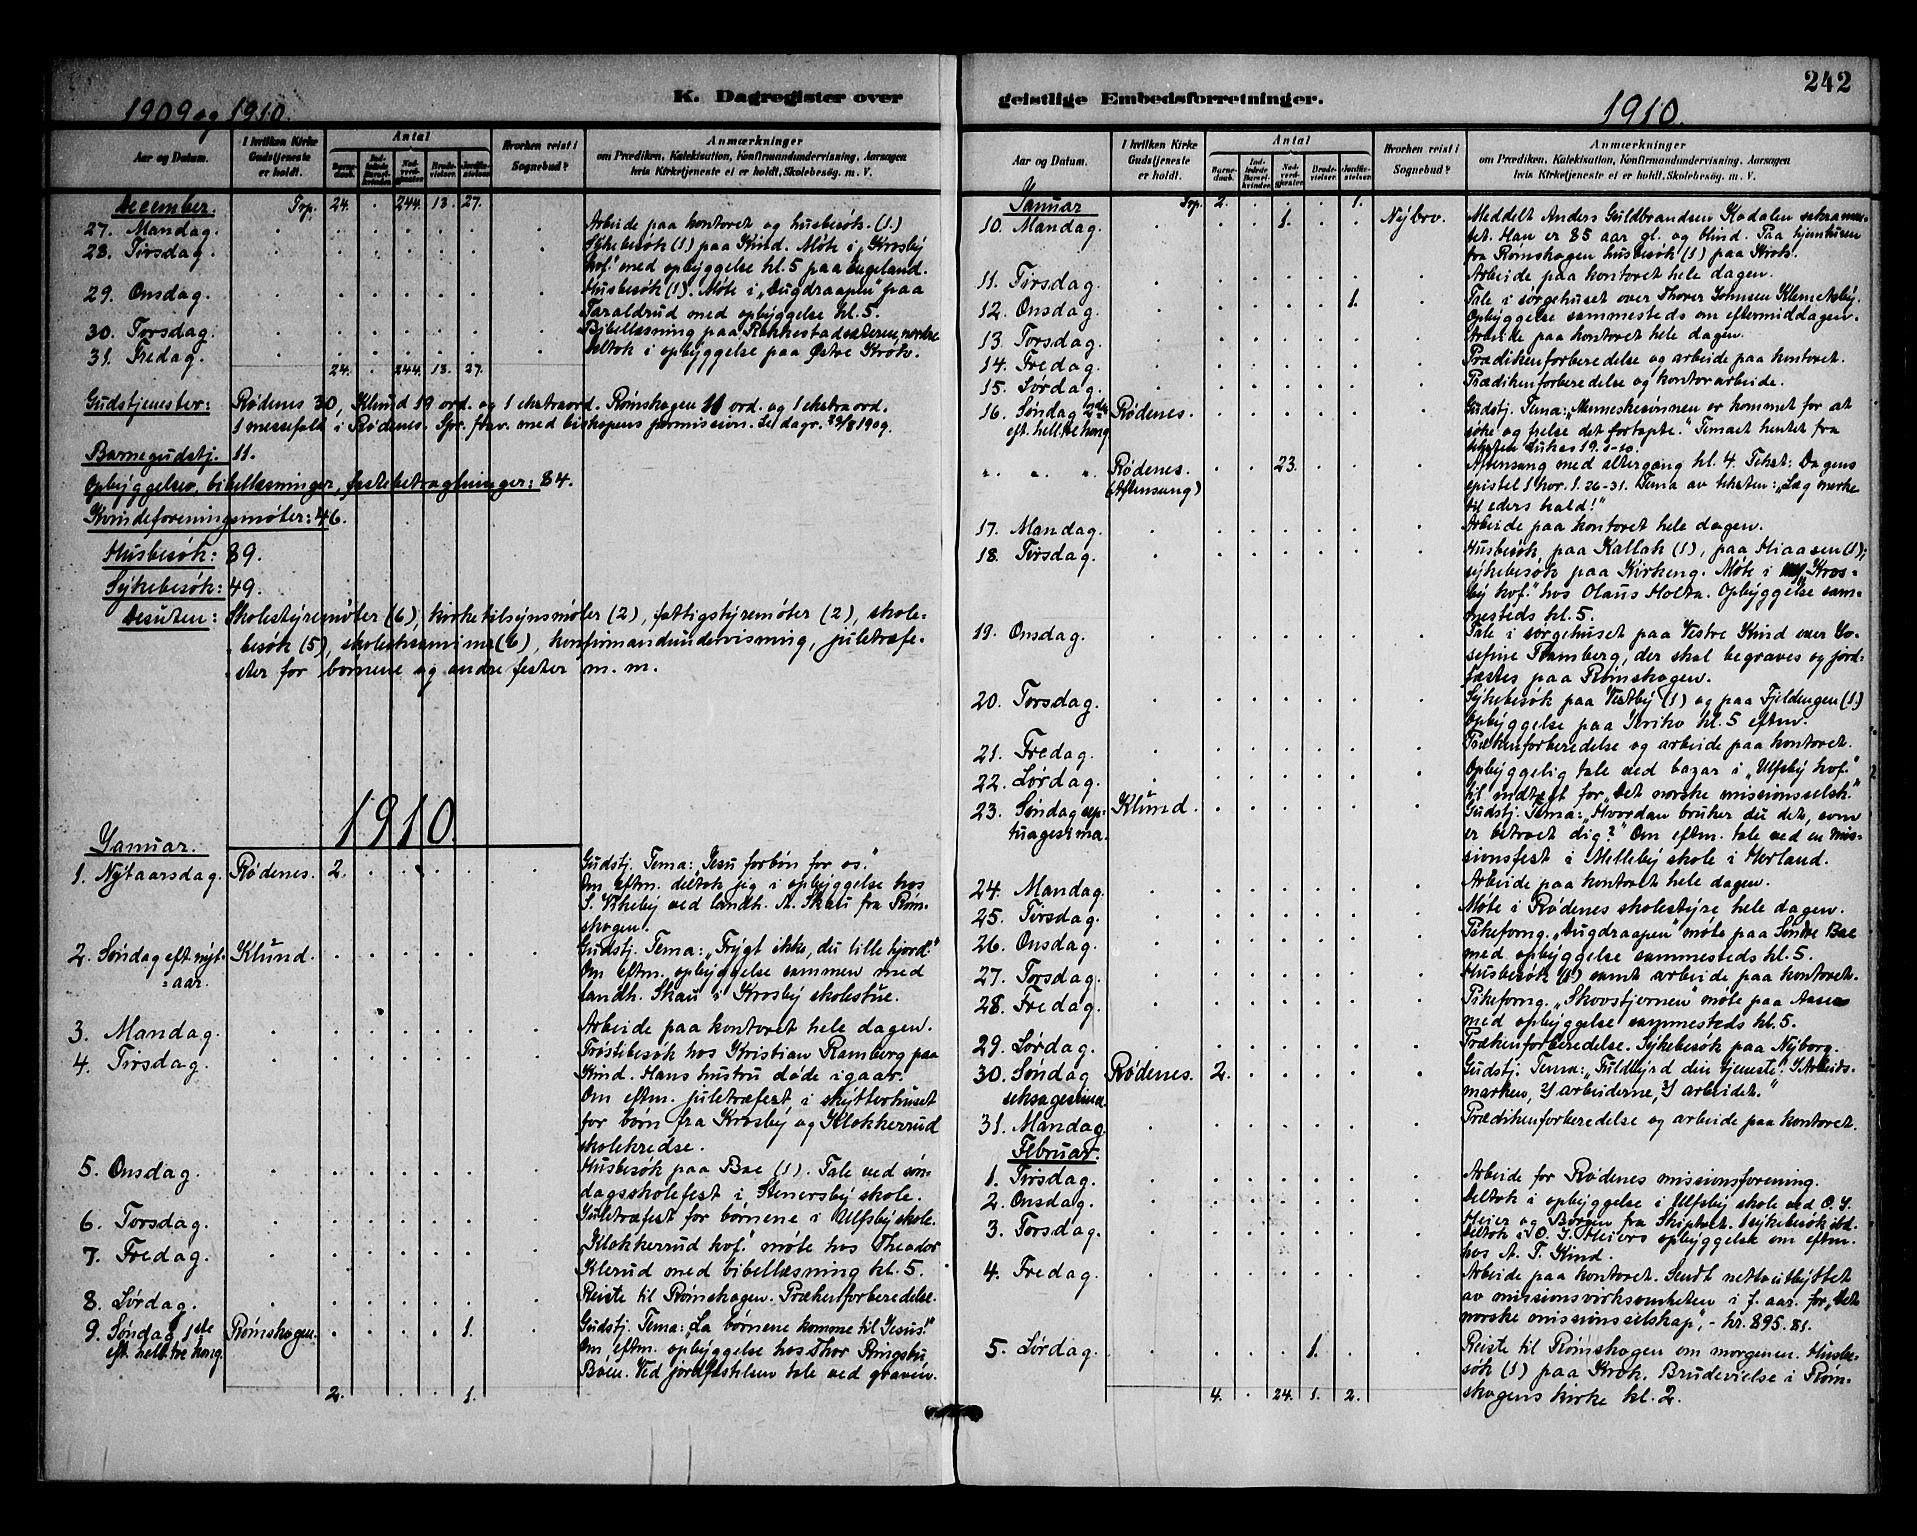 242
K. Dagregister over geistlige Embedsforretninger.
1909 og 1910.
1910.
Aar og Datum.
I hvilken Kirke Gudstjeneste er holdt.
Antal
Barne-daab.
Ind-ledede Barsel-kvinder.
Nad-verd-gjester.
Brude-vielser.
Jordfæ-stelser.
Hvorhen reist i Sognebud?
Anmærkninger
om Prædiken, Katekisation, Konfirmandundervisning, Aarsagen
hvis Kirketjeneste ei er holdt, Skolebesøg m. V.
December. Trp. 24. . 244. 13. 27.
27. Mandag. Arbeide paa kontoret og husbesøk. (1.)
28. Tirsdag. Sykebesøk (1) paa Kind. Møte i „Krosby
hof." med opbyggelse kl. 5 paa Engeland.
29. Onsdag. Husbesøk (1). Møte i „Dugdraapen" paa
Taraldrud med opbyggelse kl. 5.
30. Torsdag. Bibellæsning paa Rakkestadsæteren, nordre
31. Fredag. Deltok i opbyggelse paa Østre Krok.
24. . 244. 13. 27.
Gudstjenester: Rødenes 30, Klund 19 ord. og 1 ekstraord. Rømskogen 11 ord. og 1 ekstraord.
1 messefald i Rødenes. Spr. frav. med biskopens permission. Se dagr. 29/8 1909.
Barnegudstj. 11.
Opbyggelser, bibellæsninger, fastebetragtninger: 84.
Kvindeforeningsmøter: 46.
Husbesøk: 89.
Sykebesøk: 49.
Desuten: Skolestyremøter (6), kirketilsynsmøter (2), fattigstyremøter (2), skole-
besøk (5), skoleeksamina (6), konfirmandundervisning, juletræfe-
ster for børnene og andre fester m. m.
1910.
Januar.
1. Nytaarsdag. Rødenes. 2. Gudstj. Tema: „Jesu forbøn for os."
Om eftm. deltok jeg i opbyggelse hos
S. Vikeby ved landh. A. Skau fra Røm-
skogen.
2. Søndag eft. nyt- Klund. Gudstj. Tema: „Frygt ikke, du lille hjord!"
aar. Om eftm. opbyggelse sammen med
landh. Skau i Krosby skolestue.
3. Mandag. Arbeide paa kontoret hele dagen.
4. Tirsdag. Trøstebesøk hos Kristian Ramberg paa
Kind. Hans hustru døde igaar.
Om eftm. juletræfest i skytterhuset
for børn fra Krosby og Klokkerrud
skolekredse.
5. Onsdag. Husbesøk paa Bae (1). Tale ved søn-
dagsskolefest i Stenersby skole.
6. Torsdag. Juletræfest for børnene i Ulfsby skole.
7. Fredag. „Klokkerrud hof." møte hos Theodor
Klerud med bibellæsning kl. 5.
8. Lørdag. Reiste til Rømskogen. Prækenforberedelse.
9. Søndag 1ste Rømskogen. 1. Gudstj. Tema: „La børnene komme til Jesus!"
eft. hell. tre kong. Om eftm. opbyggelse hos Thor Ringsbu
Boen. Ved jordfæstelsen tale ved graven.
2. 1.
Januar Trp. 2. 1.
10. Mandag. 1. Nybro. Meddelt Anders Guldbrandsen Kadalen sakramen-
tet. Han er 85 aar gl. og blind. Paa hjemturen
fra Rømskogen husbesøk (1) paa Krok.
11. Tirsdag. Arbeide paa kontoret hele dagen.
12. Onsdag. 1. Tale i sørgehuset over Thorer Johnsen Klemetsby.
Opbyggelse sammesteds om eftermiddagen.
13. Torsdag. Arbeide paa kontoret hele dagen.
14. Fredag. Prædikenforberedelse og arbeide paa kontoret.
15. Lørdag. Prædikenforberedelse og kontorarbeide.
16. Søndag 2nden Rødenes. Gudstj. Tema: „Menneskesønnen er kommet for at
eft. hell. tre kong. søke og frelse det fortapte." Temaet hentet fra
teksten Lukas 19. 1-10.
" " " Rødenes. 23. Aftensang med altergang kl. 4. Tekst: Dagens
(Aftensang) epistel 1 Kor. 1. 26-31. Tema av teksten: „Læg merke
til eders kald!"
17. Mandag. Arbeide paa kontoret hele dagen.
18. Tirsdag. Husbesøk, paa Kallak (1), paa Hiaasen (1);
sykebesøk paa Kirkeng. Møte i „Kros-
by hof." hos Olaus Holta. Opbyggelse sam-
mesteds kl. 5.
19. Onsdag. Tale i sørgehuset paa Vestre Kind over Jo-
sefine Ramberg, der skal begraves og jord-
fæstes paa Rømskogen.
20. Torsdag. Sykebesøk paa Vestby (1) og paa Fjeldengen (1.)
Opbyggelse paa Jeriko kl. 5 eftm.
21. Fredag. Prækenforberedelse og arbeide paa kontoret.
22. Lørdag. Opbyggelig tale ved bazar i „Ulfsby hof."
til indtægt for „Det norske missionsselsk."
23. Søndag sep- Klund. Gudstj. Tema: „Hvordan bruker du det, som
tuagesima. er betroet dig?" Om eftm. tale ved en mis-
sionsfest i Melleby skole i Herland.
24. Mandag. Arbeide paa kontoret hele dagen.
25. Tirsdag. Møte i Rødenes skolestyre hele dagen.
26. Onsdag. Pikeforng. „Dugdraapen" møte paa Søndre Bae
med opbyggelse sammesteds kl. 5.
27. Torsdag. Husbesøk (1) samt arbeide paa kontoret.
28. Fredag. Pikeforng. „Skovstjernen" møte paa Aasen
med opbyggelse sammesteds kl. 5.
29. Lørdag. Prækenforberedelse. Sykebesøk paa Nyborg.
30. Søndag Rødenes. 2. Gudstj. Tema: „Fuldbyrd din tjeneste! 1) Arbeids-
seksagesima. marken, 2) arbeiderne, 3) arbeidet."
31. Mandag. Prædikenforberedelse og arbeide paa kontoret.
Februar.
1. Tirsdag. Arbeide for Rødenes missionsforening.
2. Onsdag. Deltok i opbyggelse i Ulfsby skole ved O. J.
Heier og Borgen fra Skiptvet. 1 sykebesøk ibd.
3. Torsdag. Deltok i O. J. Heiers opbyggelse om eftm.
hos A. T. Kind.
4. Fredag. Arbeide paa kontoret. Sendt nettoutbyttet
av missionsvirksomheten i f. aar. for „Det
norske missionsselskap", - kr. 895.81.
5. Lørdag. 1. Reiste til Rømskogen om morgenen. Husbe-
søk (1) paa Krok. Brudevielse i Røm-
skogens kirke kl. 2.
4. . 24. 1. 2.